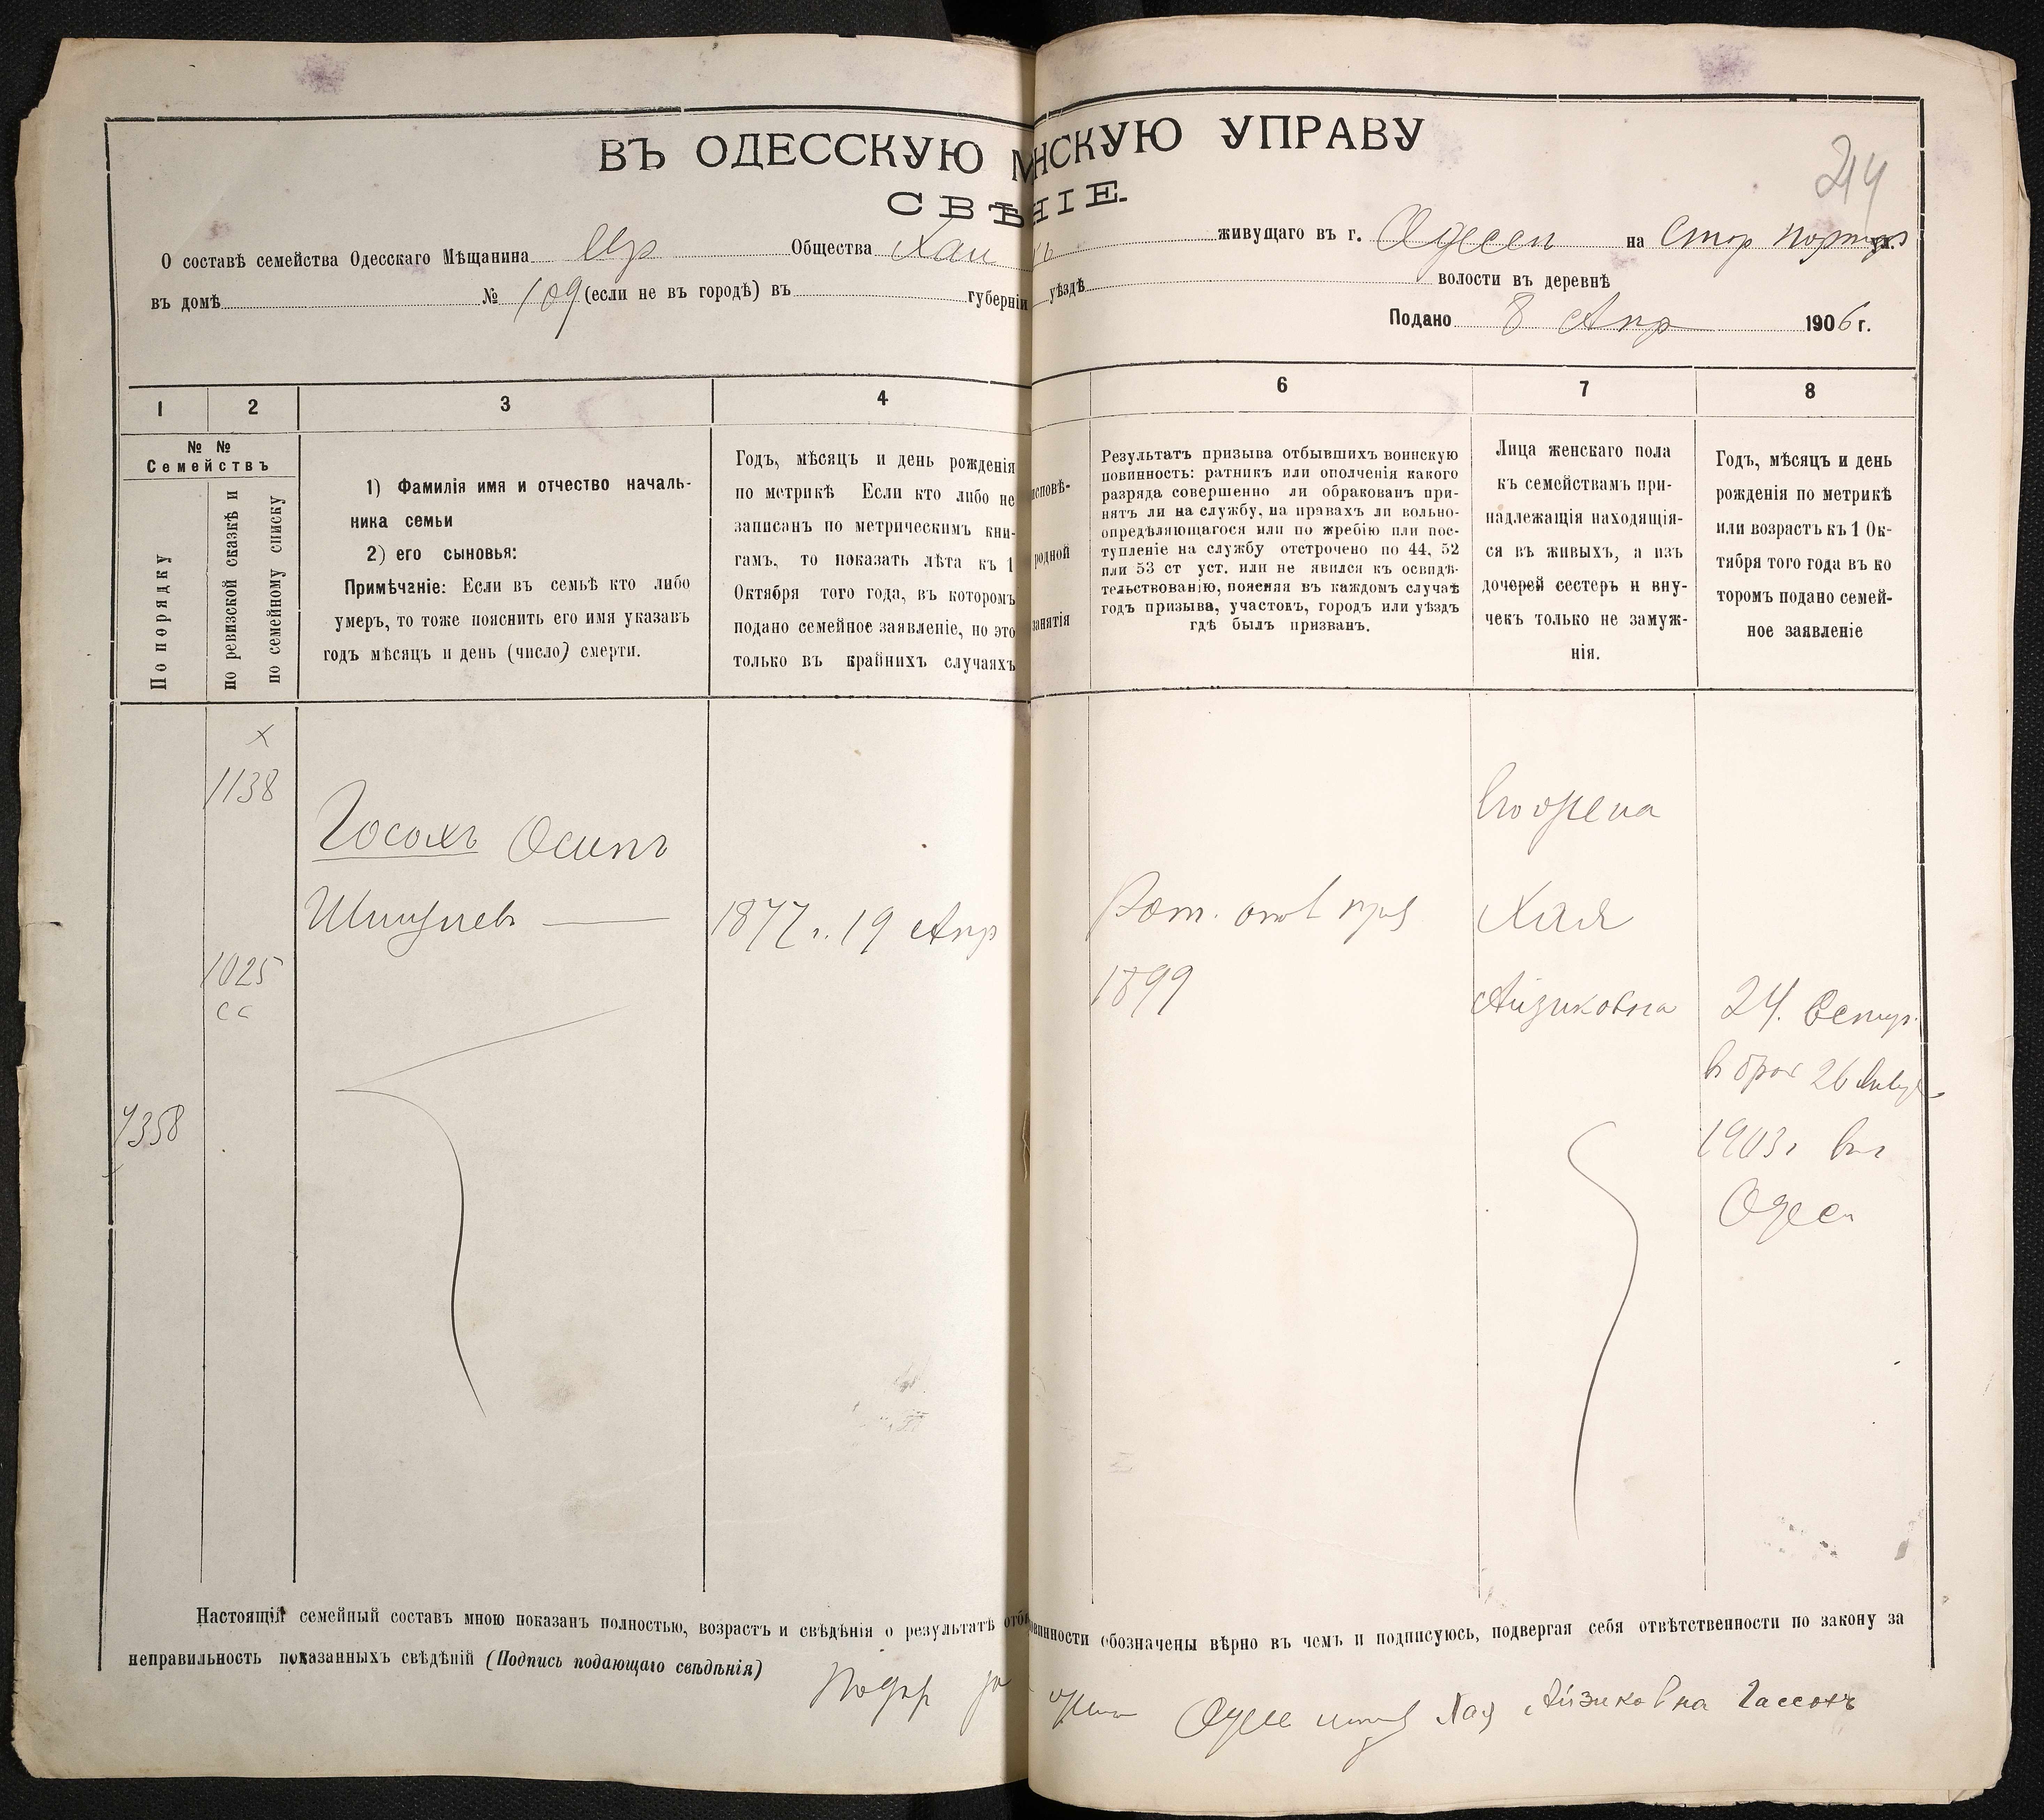 ВЪ ОДЕССКУЮ М НСКУЮ УПРАВУ
244
СВѢ НІЕ.
О составѣ семейства Одесскаго Мѣщанина Евр Общества живущаго въ г. Одессы на Стор Портоф ул.
въ домѣ № 109 (если не въ городѣ) въ губерніи уѣздѣ волости въ деревнѣ
Подано 8 Апр 1906 г.
1 2 3 4 6 7 8
№ № Семействъ
По порядку
по ревизской сказкѣ и
по семейному списку
1) Фамилія имя и отчество началь-
ника семьи
2) его сыновья:
Примѣчаніе: Если въ семьѣ кто либо
умеръ, то тоже пояснить его имя указавъ
годъ мѣсяцъ и день (число) смерти.
Годъ, мѣсяцъ и день рожденія
по метрикѣ Если кто либо не
записанъ по метрическимъ кни-
гамъ, то показать лѣта къ 1
Октября того года, въ которомъ
подано семейное заявленіе, но это
только въ крайнихъ случаяхъ
исповѣ-
родной
занятія
Результатъ призыва отбывшихъ воинскую
повинность: ратникъ или ополченія какого
разряда совершенно ли обракованъ при-
нятъ ли на службу, на правахъ ли вольно-
опредѣляющагося или по жребію или пос-
тупленіе на службу отстрочено по 44, 52
или 53 ст уст. или не явился къ освидѣ-
тельствованію, поясняя въ каждомъ случаѣ
годъ призыва, участокъ, городъ или уѣздъ
гдѣ былъ призванъ.
Лица женскаго пола
къ семействамъ при-
надлежащія находящія-
ся въ живыхъ, а изъ
дочерей сестеръ и вну-
чекъ только не замуж-
нія.
Годъ, мѣсяцъ и день
рожденія по метрикѣ
или возрастъ къ 1 Ок-
тября того года въ ко
торомъ подано семей-
ное заявленіе
х
1138
Госохъ Осипъ
Шмулевъ
1877 г. 19 Апр
1025
сс
7358
Рат. опол
1899
Его жена
Хая
Айзиковна
24.
въ брак 26 Январ
1903 г въ г
Одес
Настоящій семейный составъ мною показанъ полностью, возрастъ и свѣдѣнія о результатѣ отб овинности обозначены вѣрно въ чемъ и подписуюсь, подвергая себя отвѣтственности по закону за
неправильность показанныхъ свѣдѣній (Подпись подающаго свѣдѣнія)
Одесс Хая Айзиковна Гассохъ